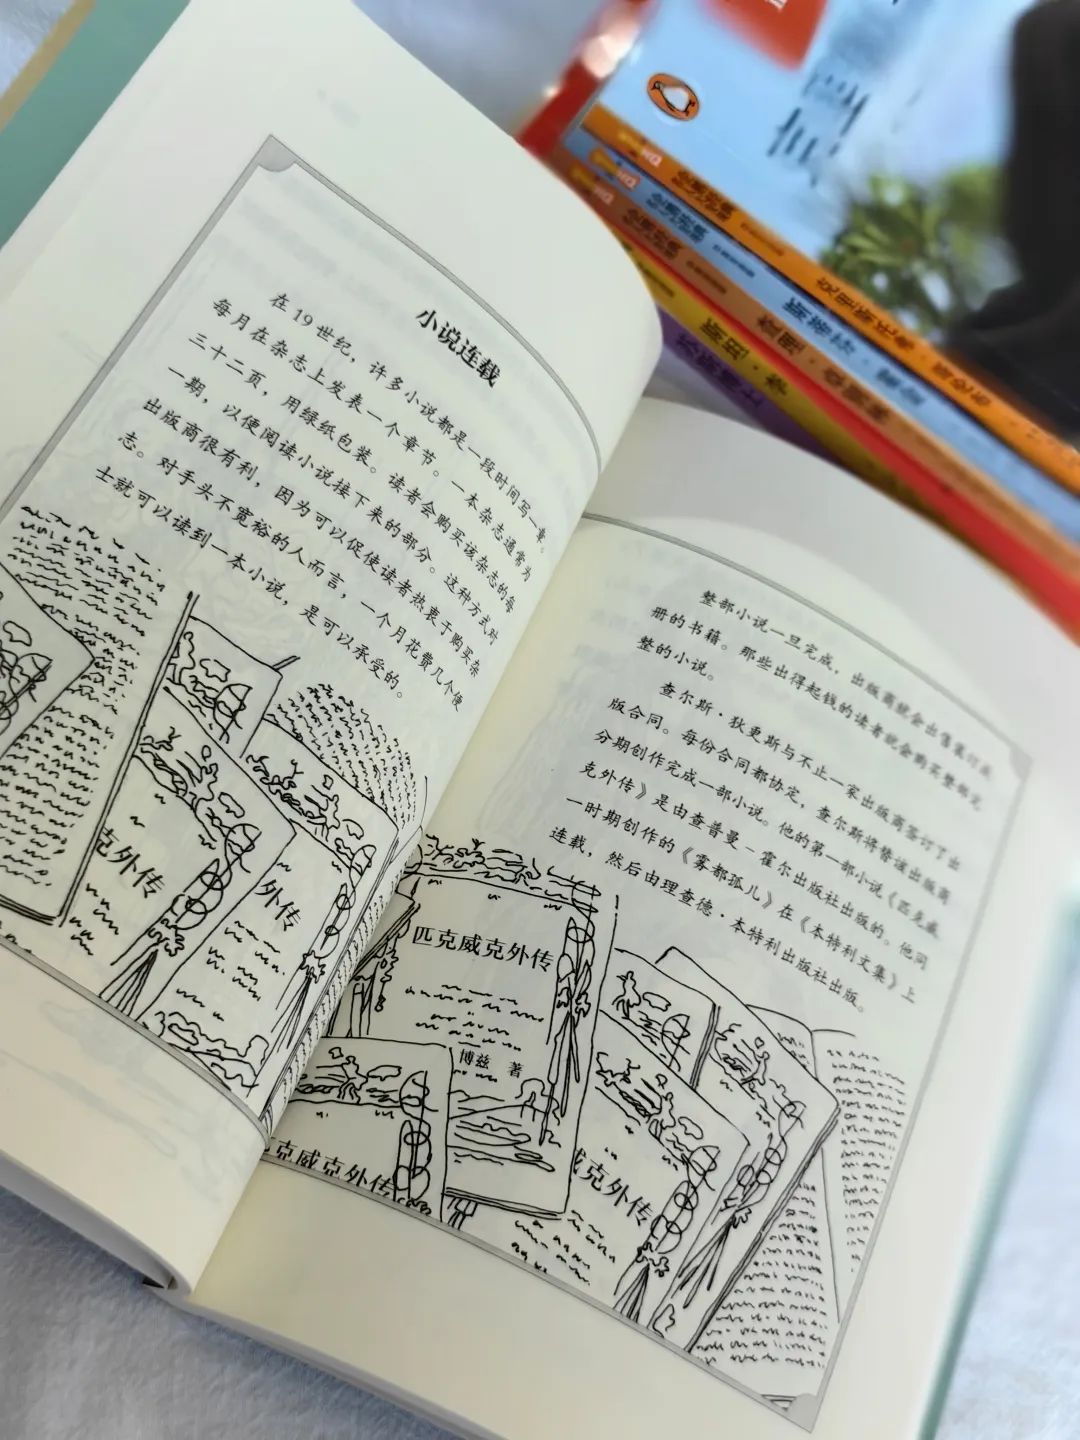 小说连载
在19世纪，许多小说都是一段时间写一章。
每月在杂志上发表一个章节。一本杂志通常为
三十二页，用绿纸包装。读者会购买该杂志的每
一期，以便阅读小说接下来的部分。这种方式对
出版商很有利，因为可以促使读者热衷于购买杂
志。对手头不宽裕的人而言，一个月花费几个便
士就可以读到一本小说，是可以承受的。
克外传
外传
整部小说一旦完成，出版商就会出售装订成
册的书籍。那些出得起钱的读者就会购买整部完
整的小说。
查尔斯·狄更斯与不止一家出版商签订了出
版合同。每份合同都协定，查尔斯将替该出版商
分期创作完成一部小说。他的第一部小说《匹克威
克外传》是由查普曼－霍尔出版社出版的。他同
一时期创作的《雾都孤儿》在《本特利文集》上
连载，然后由理查德·本特利出版社出版。
匹克威克外传
博兹 著
匹克威克外传
威克外传